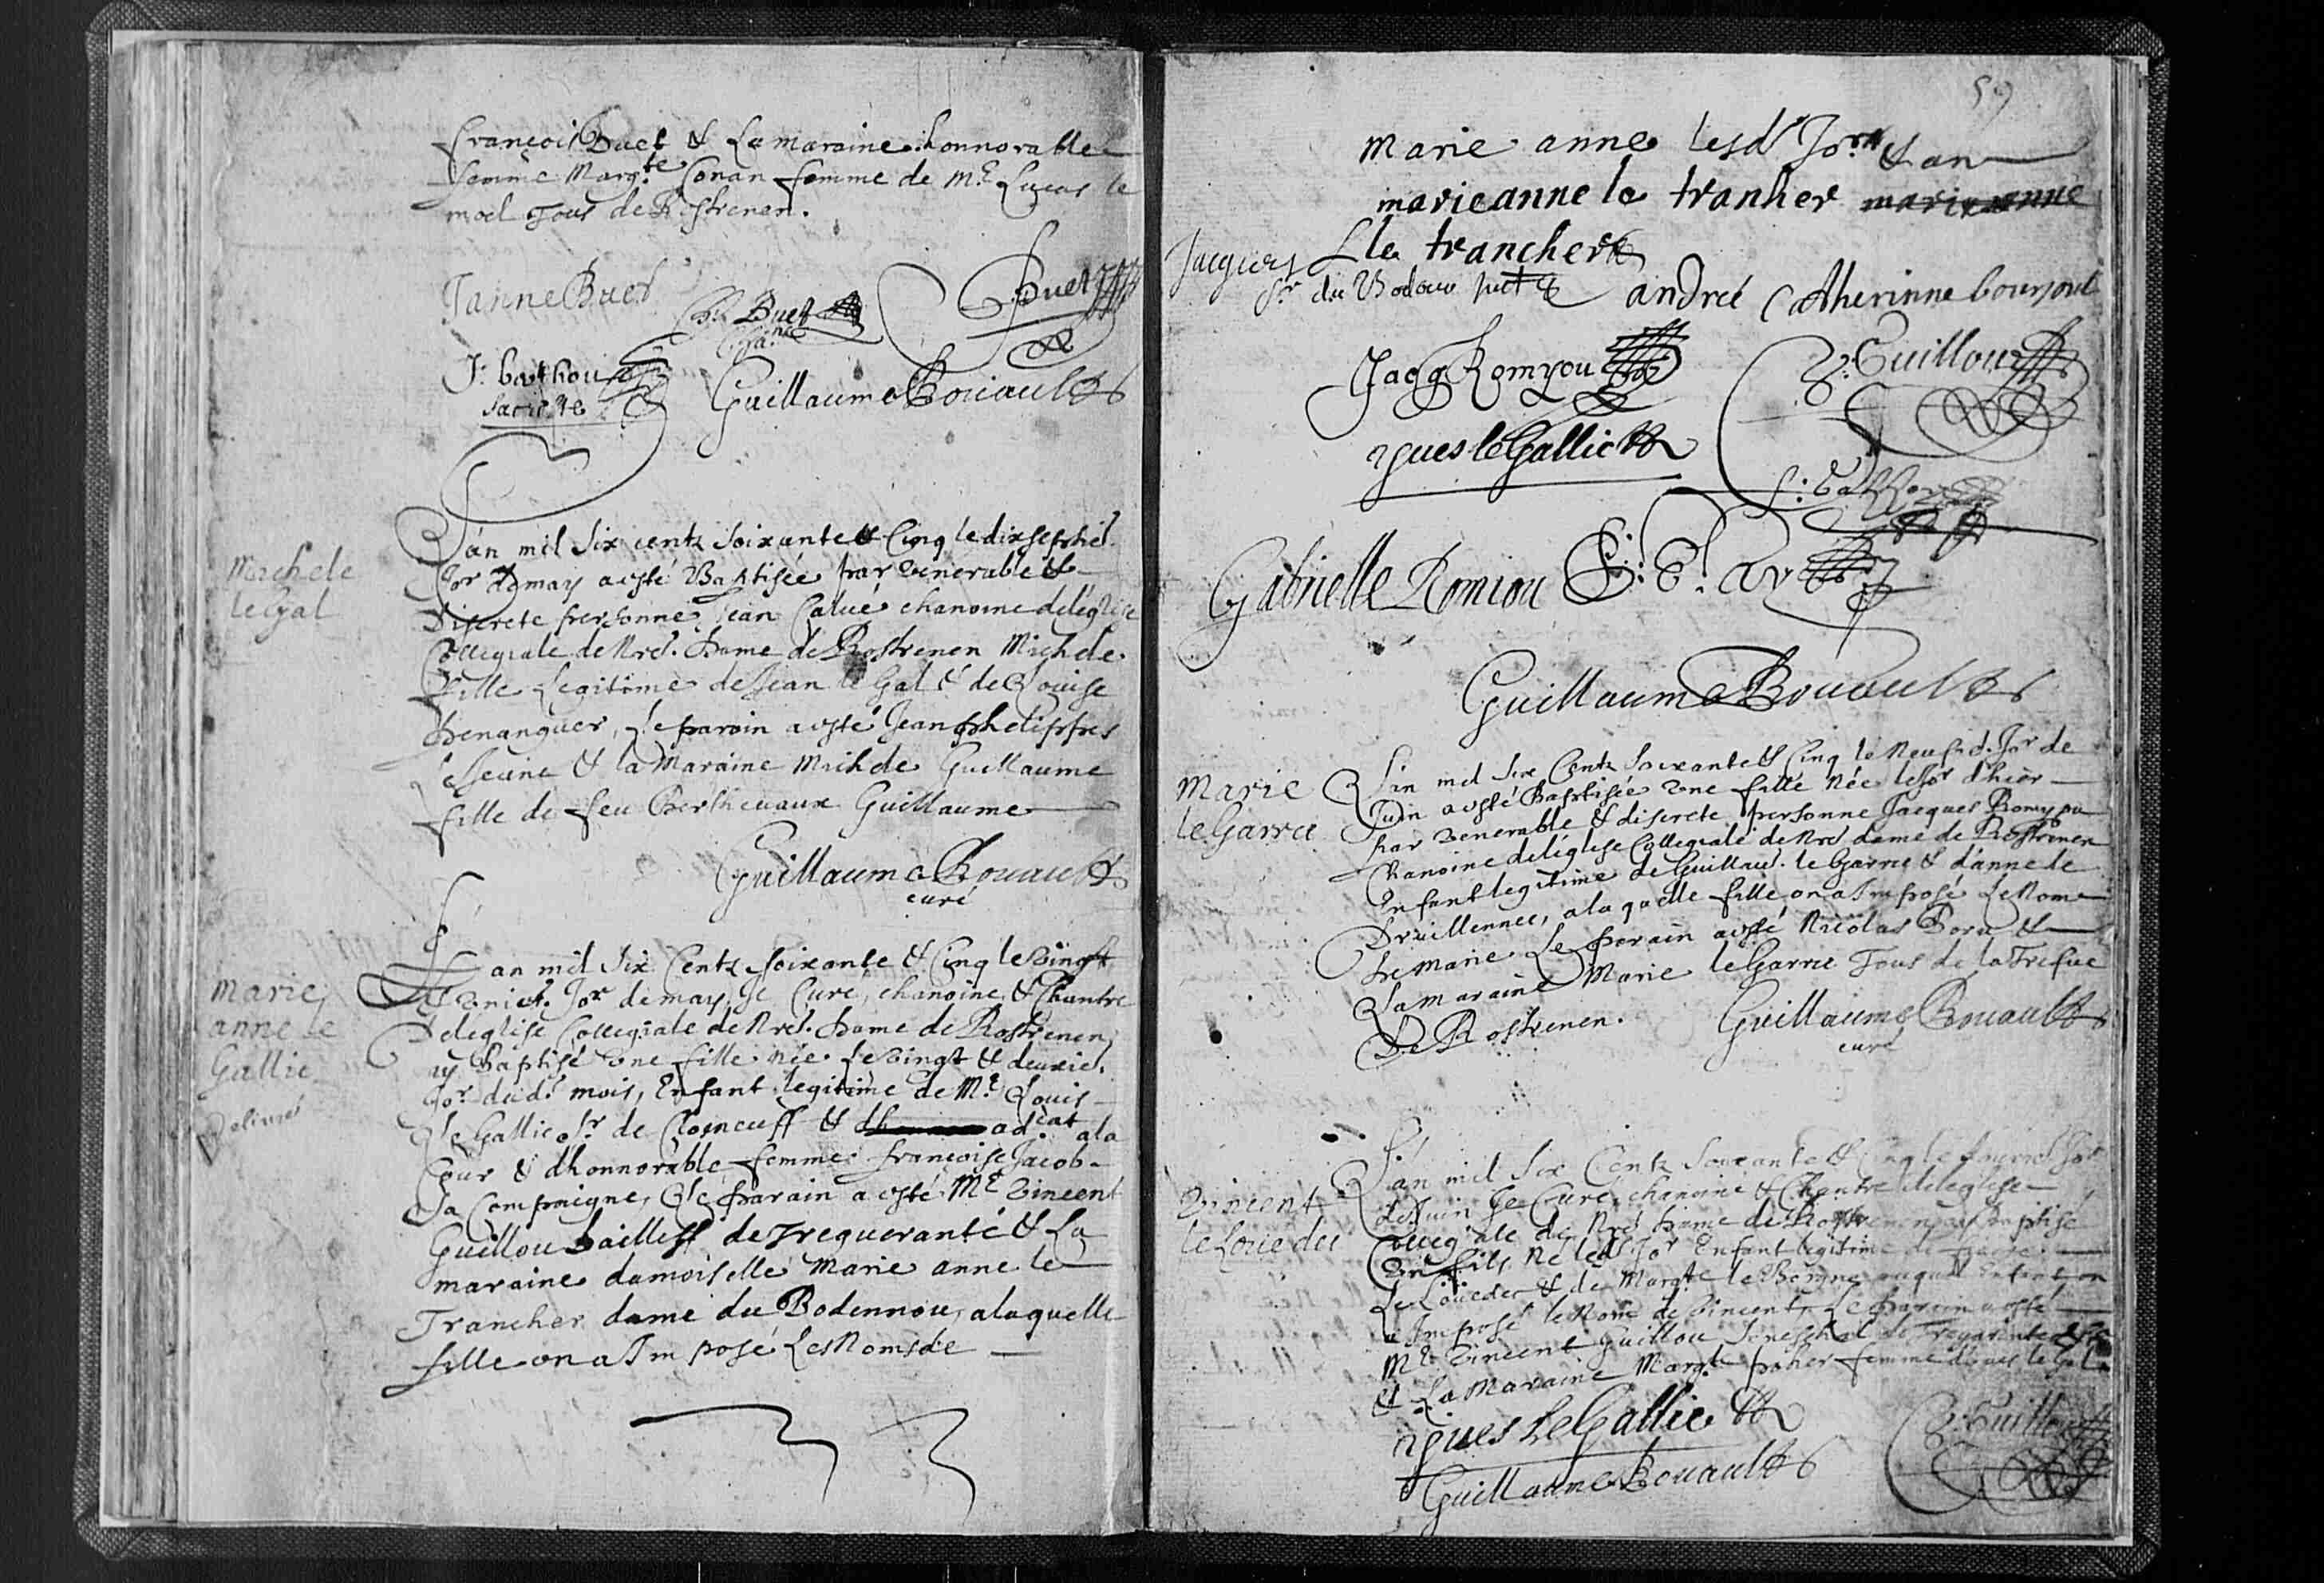 françois Buet & La maraine honnorable
femme Marg.te Conan femme de M.e Lucas le
moel Tous de Rostrenen.
Janne Buet
Buet
Buet
J: bathou
Guillaume Bouault
Michele
le Gal
L'an mil six centz soixante & Cinq le dixsepthie.
Jor de may a esté Baptisée par venerable &
Discrete personne Jean Calué chanoine de leglise
Collegiale de Nre. Dame de Rostrenen Michele
fille Legitime de Jean le Gal & de Louise
henanguer, Le paroin a esté Jean phelippes
le Jeune & la Maraine Michele Guillaume
fille de feu Berthevaux Guillaume
Guillaume Bouault
curé
Marie
anne le
Gallic
L'an mil six Centz soixante & Cinq le vingt
& Jor de may, Je Curé, chanoine, & Chantre
De leglise Collegiale de Nre. Dame de Rostrenen
ay Baptisé vne fille née le vingt & deuxie.
Jor. dud. mois, Enfant legitime de M.e Louis
Le Gallic Sr. de & adcat a la
Cour & dhonnorable femme françoise Jacob
Sa Compaigne, Le parain a esté M.e Vincent
Guillou bailleff de Treguranté & La
maraine damoiselle Marie anne le
Trancher dame du Bodennou, a laquelle
fille on a Imposé Les Noms de
59
Marie anne lesd. Jor. & an
marieanne le tranher
Jacques le trancher
Sr du Bodeno andreé Catherinne bourjoul
Jacq Romyou
V: Guillou
yues le Gallic
Gabrielle Romiou
Guillaume Bouault
Marie
le Garrec
L'an mil six Centz soixante & Cinq le Neufie. Jor de
Juin a esté Baptisée vne fille Née le Jor dhier
par venerable & discrete personne Jacques Romyou
Chanoine de léglise Collegiale de Nre dame de Rostrenen
Enfant legitime de Guillau. le Garrec & d'anne le
Druillennec, a la quelle fille on a Imposé Le Nom
de Marie Le parain a esté Nicolas &
La maraine Marie le Garrec Tous de la Trefue
De Rostrenen.
Guillaume Bouault
curé
Vincent
le Louedec
L'an mil six Centz soixante & Cinq le Jor
de Juin Je Curé, chanoine & Chantre de leglise
Collegiale de Nre Dame de Rostrenen ay Baptisé
Vn fils Né led. Jor Enfant legitime de
Le Louedec & de Margte le auquel Enfant on
a Imposé le Nom de Vincent, Le parain a esté
M.e Vincent Guillou Seneschal de
& La Maraine Margte paher femme d'yues le
yues Le Gallic
V: Guillou
Guillaume Bouault